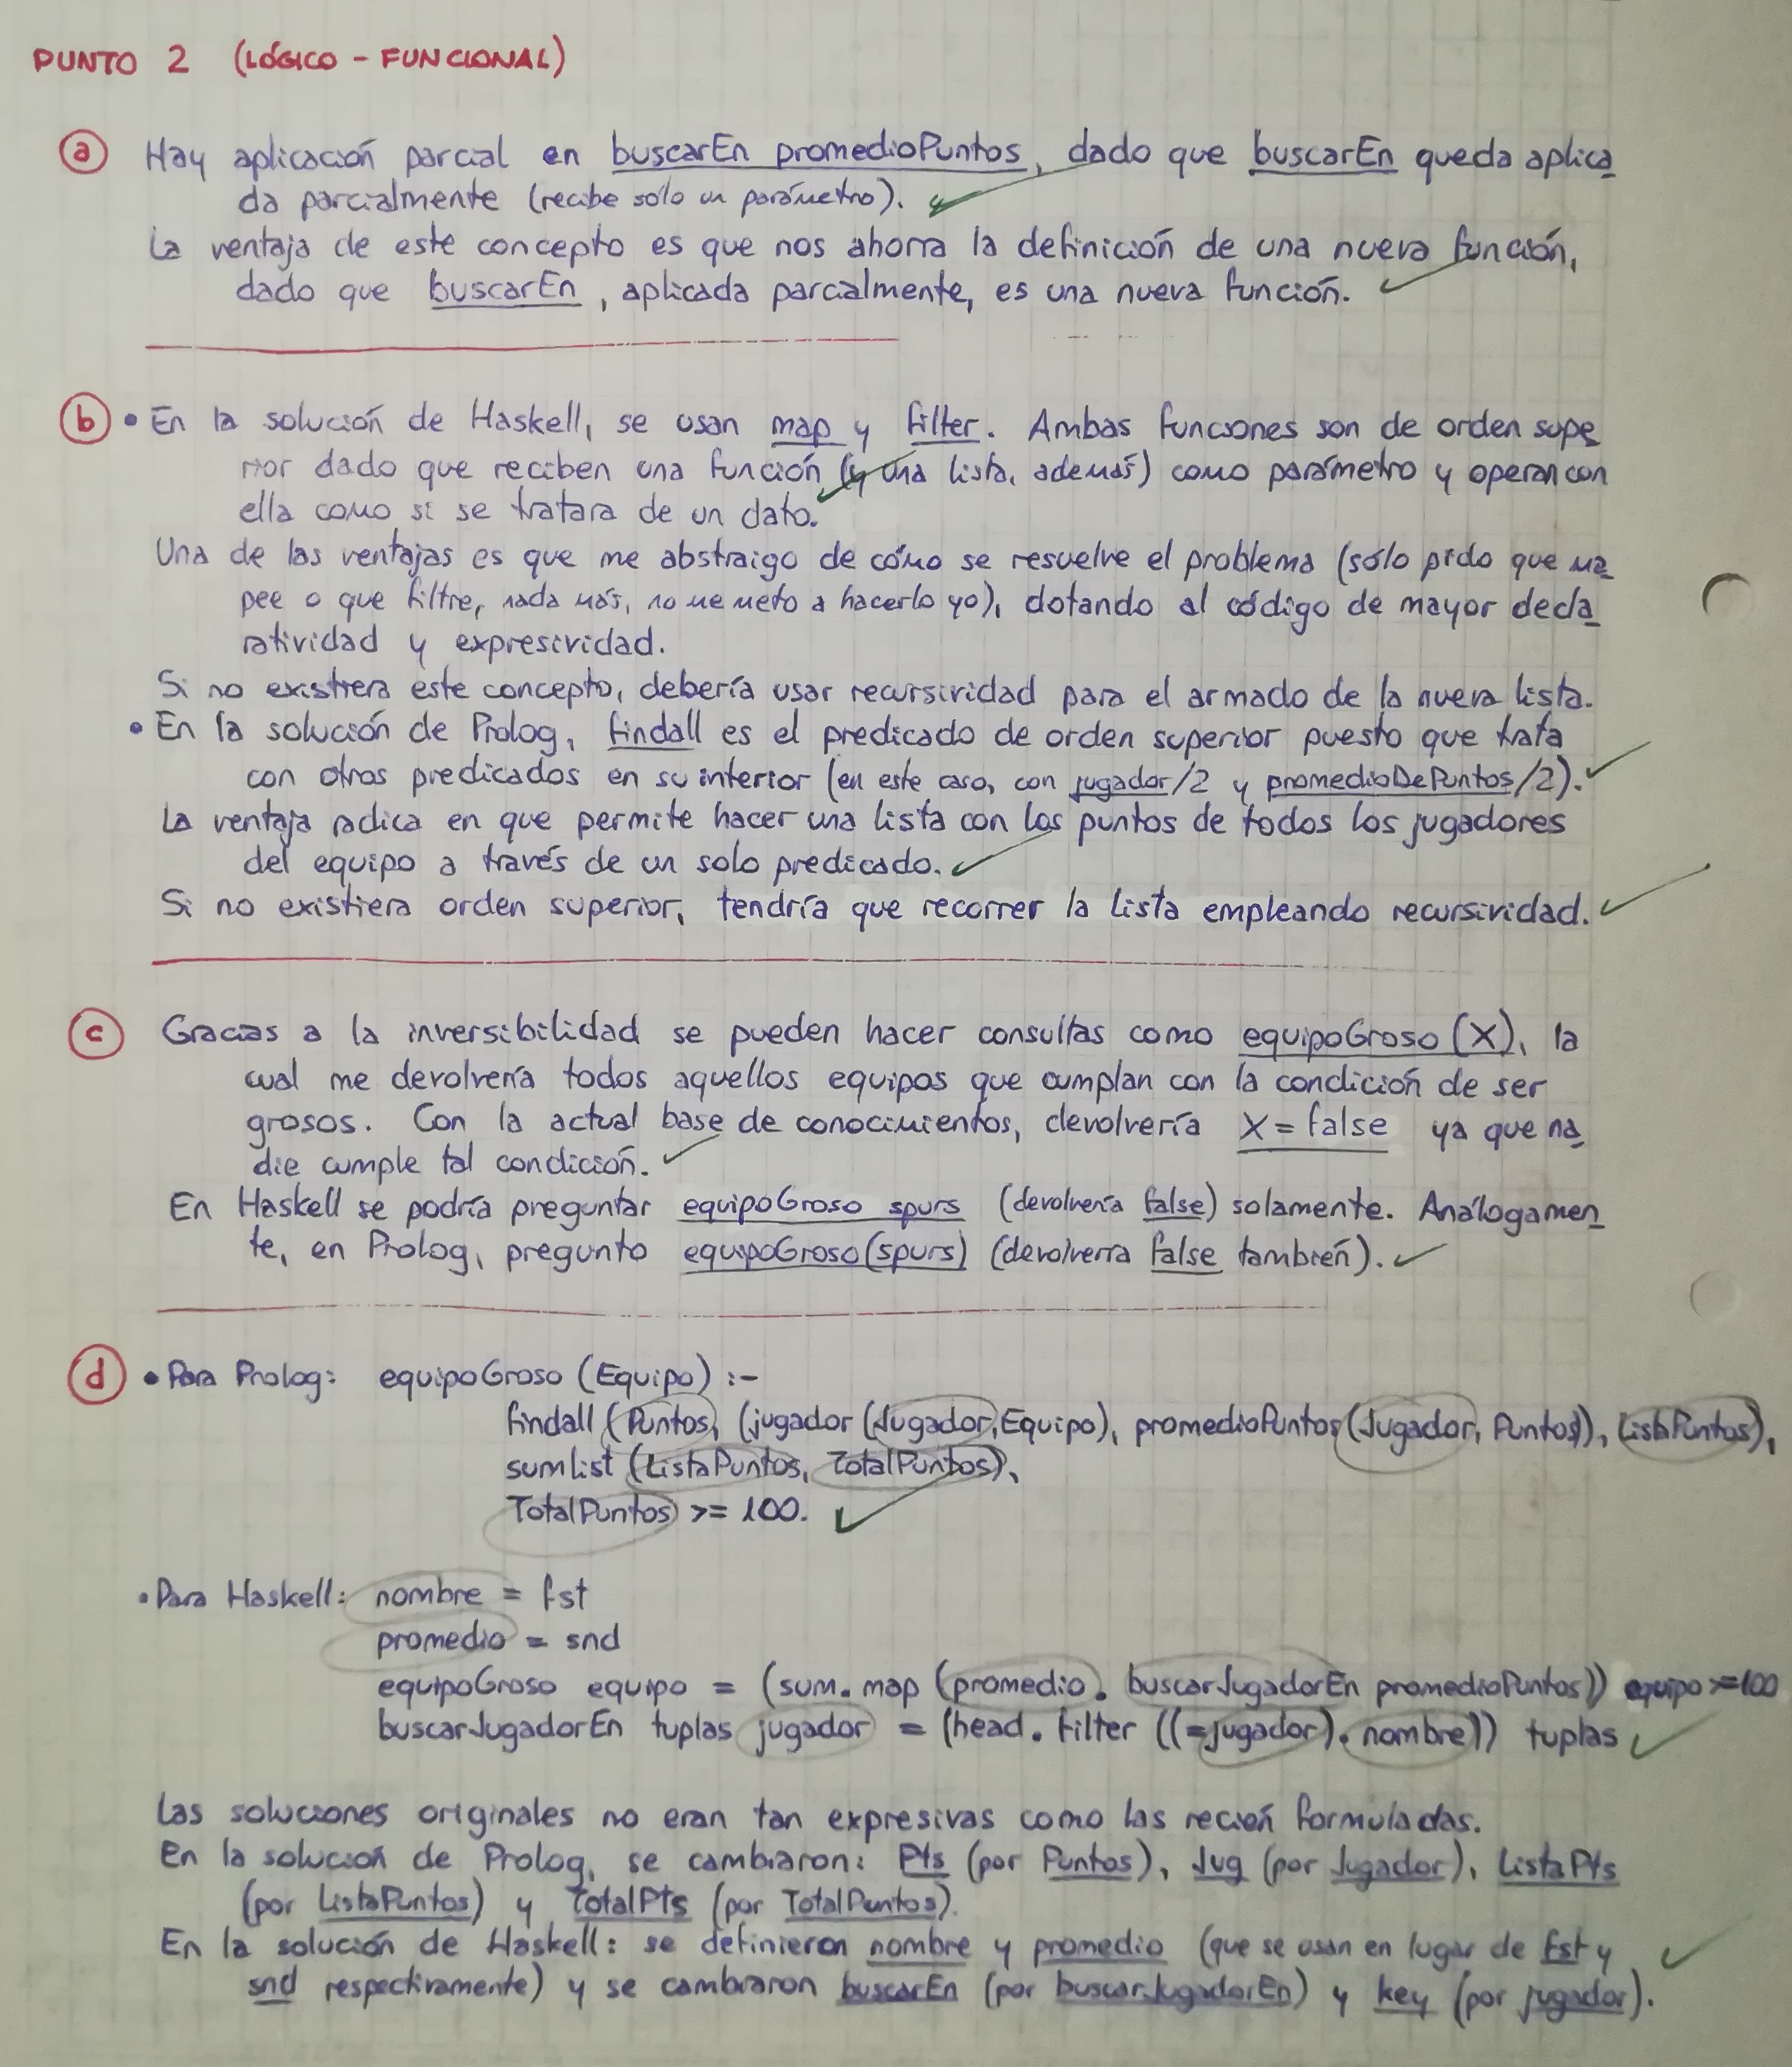 PUNTO 2 (LÓGICO - FUNCIONAL)
a Hay aplicación parcial en buscarEn promedioPuntos, dado que buscarEn queda aplica
da parcialmente (recibe sólo un parámetro).
La ventaja de este concepto es que nos ahorra la definición de una nueva función,
dado que buscarEn, aplicada parcialmente, es una nueva función.
b • En la solución de Haskell, se usan map y filter. Ambas funciones son de orden supe
rior dado que reciben una función (y una lista, además) como parámetro y operan con
ella como si se tratara de un dato.
Una de las ventajas es que me abstraigo de cómo se resuelve el problema (sólo pido que ma
pee o que filtre, nada más, no me meto a hacerlo yo), dotando al código de mayor decla
ratividad y expresividad.
Si no existiera este concepto, debería usar recursividad para el armado de la nueva lista.
• En la solución de Prolog, findall es el predicado de orden superior puesto que trata
con otros predicados en su interior (en este caso, con jugador/2 y promedioDePuntos/2).
La ventaja radica en que permite hacer una lista con los puntos de todos los jugadores
del equipo a través de un solo predicado.
Si no existiera orden superior, tendría que recorrer la lista empleando recursividad.
c Gracias a la inversibilidad se pueden hacer consultas como equipoGroso(X), la
cual me devolvería todos aquellos equipos que cumplan con la condición de ser
grosos. Con la actual base de conocimientos, devolvería X = false ya que na
die cumple tal condición.
En Haskell se podría preguntar equipoGroso spurs (devolvería false) solamente. Análogamen
te, en Prolog, pregunto equipoGroso(spurs) (devolverra false también).
d • Para Prolog: equipoGroso (Equipo) :-
findall (Puntos, (jugador (Jugador, Equipo), promedioPuntos (Jugador, Puntos)), ListaPuntos),
sumlist (ListaPuntos, TotalPuntos),
TotalPuntos >= 100.
• Para Haskell: nombre = fst
promedio = snd
equipoGroso equipo = (sum . map (promedio . buscarJugadorEn promedioPuntos)) equipo >= 100
buscarJugadorEn tuplas jugador = (head . filter ((=jugador) . nombre)) tuplas
Las soluciones originales no eran tan expresivas como las recién formuladas.
En la solución de Prolog, se cambiaron: Pts (por Puntos), Jug (por Jugador), ListaPts
(por ListaPuntos) y TotalPts (por TotalPuntos).
En la solución de Haskell: se definieron nombre y promedio (que se usan en lugar de fst y
snd respectivamente) y se cambiaron buscarEn (por buscarJugadorEn) y key (por jugador).